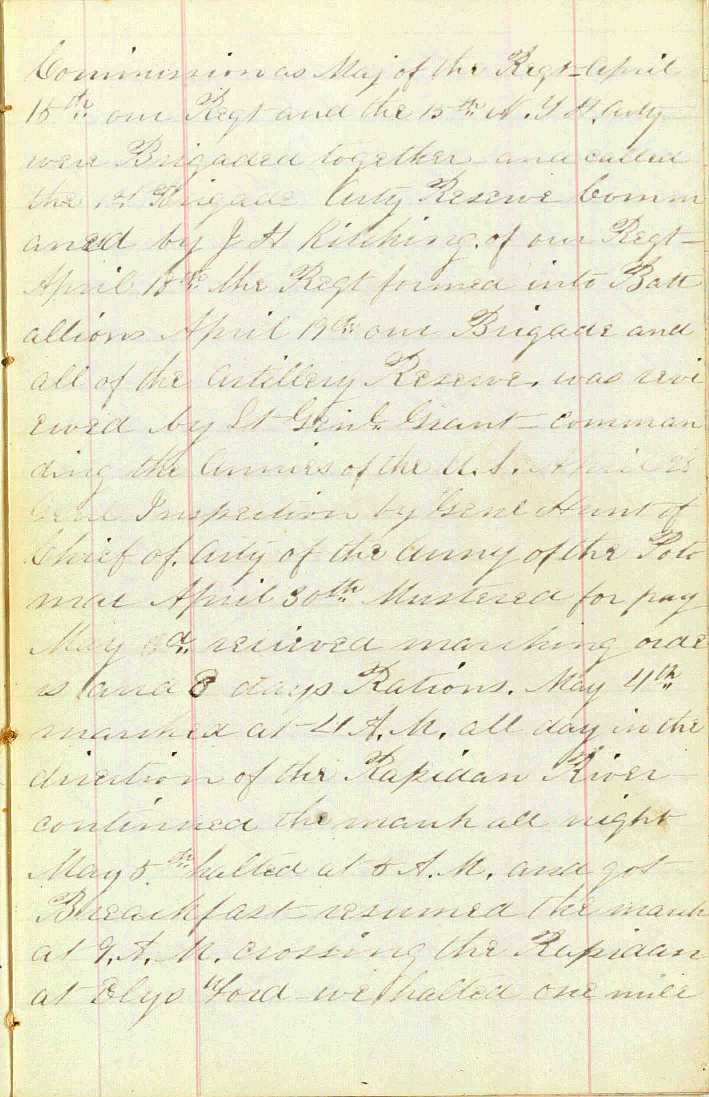 Commission as Maj of the Regt - April
15th our Regt and the 15th N. Y H. Arty
were Brigaded together - and called
the 1st Brigade Arty Reserve Comm
aned by J H Kitching. of our Regt -
April 18th the Regt formed into Batt
allions April 19th our Brigade and
all of the Artillery Reserve. was revi
ewed by Lt Genl. Grant - comman
ding the Armies of the U. S. April
Genl Inspection by Genl Hunt of
Chief of. Arty of the Army of the Poto
mac April 30th Mustered for pay
May 3d. recieved marching orde
rs and 8 days Rations. May 4th
marched at 4 A. M. all day in the
direction of the Rapidan River -
continued the march all night
May 5th halted at 5 A. M. and got
Breackfast - resumed the march
at 7. A. M. crossing the Rapidan
at Elys Ford - we halted one mile